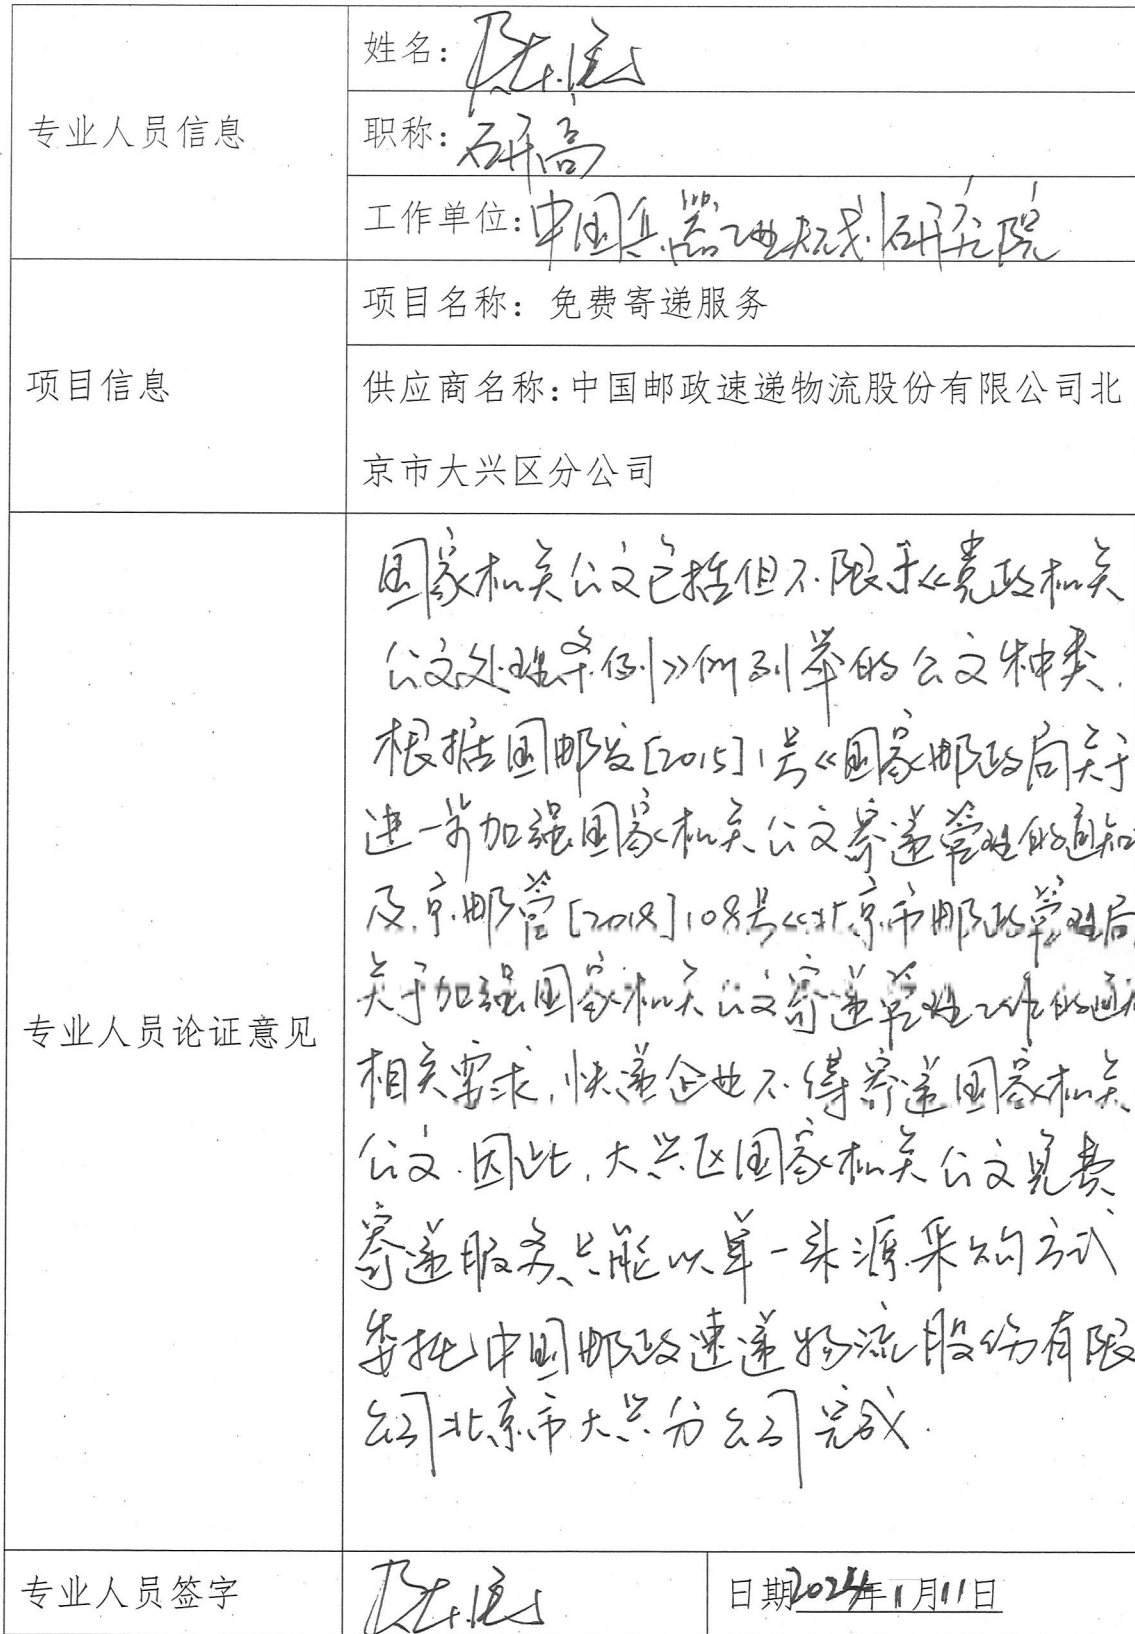 专业人员信息
姓名：
职称：研高
工作单位：中国兵器工业规划研究院
项目信息
项目名称：免费寄递服务
供应商名称：中国邮政速递物流股份有限公司北
京市大兴区分公司
专业人员论证意见
国家机关公文包括但不限于《党政机关
公文处理条例》所列举的公文种类.
根据国邮发[2015]1号《国家邮政局关于
进一步加强国家机关公文寄递管理的通知
及京邮管[2018]108号《北京市邮政管理局
关于加强国家机关公文寄递管理工作的通知
相关要求,快递企业不得寄递国家机关
公文.因此,大兴区国家机关公文免费
寄递服务只能以单一来源采购方式
委托中国邮政速递物流股份有限
公司北京市大兴分公司完成.
专业人员签字
日期2024年11月11日